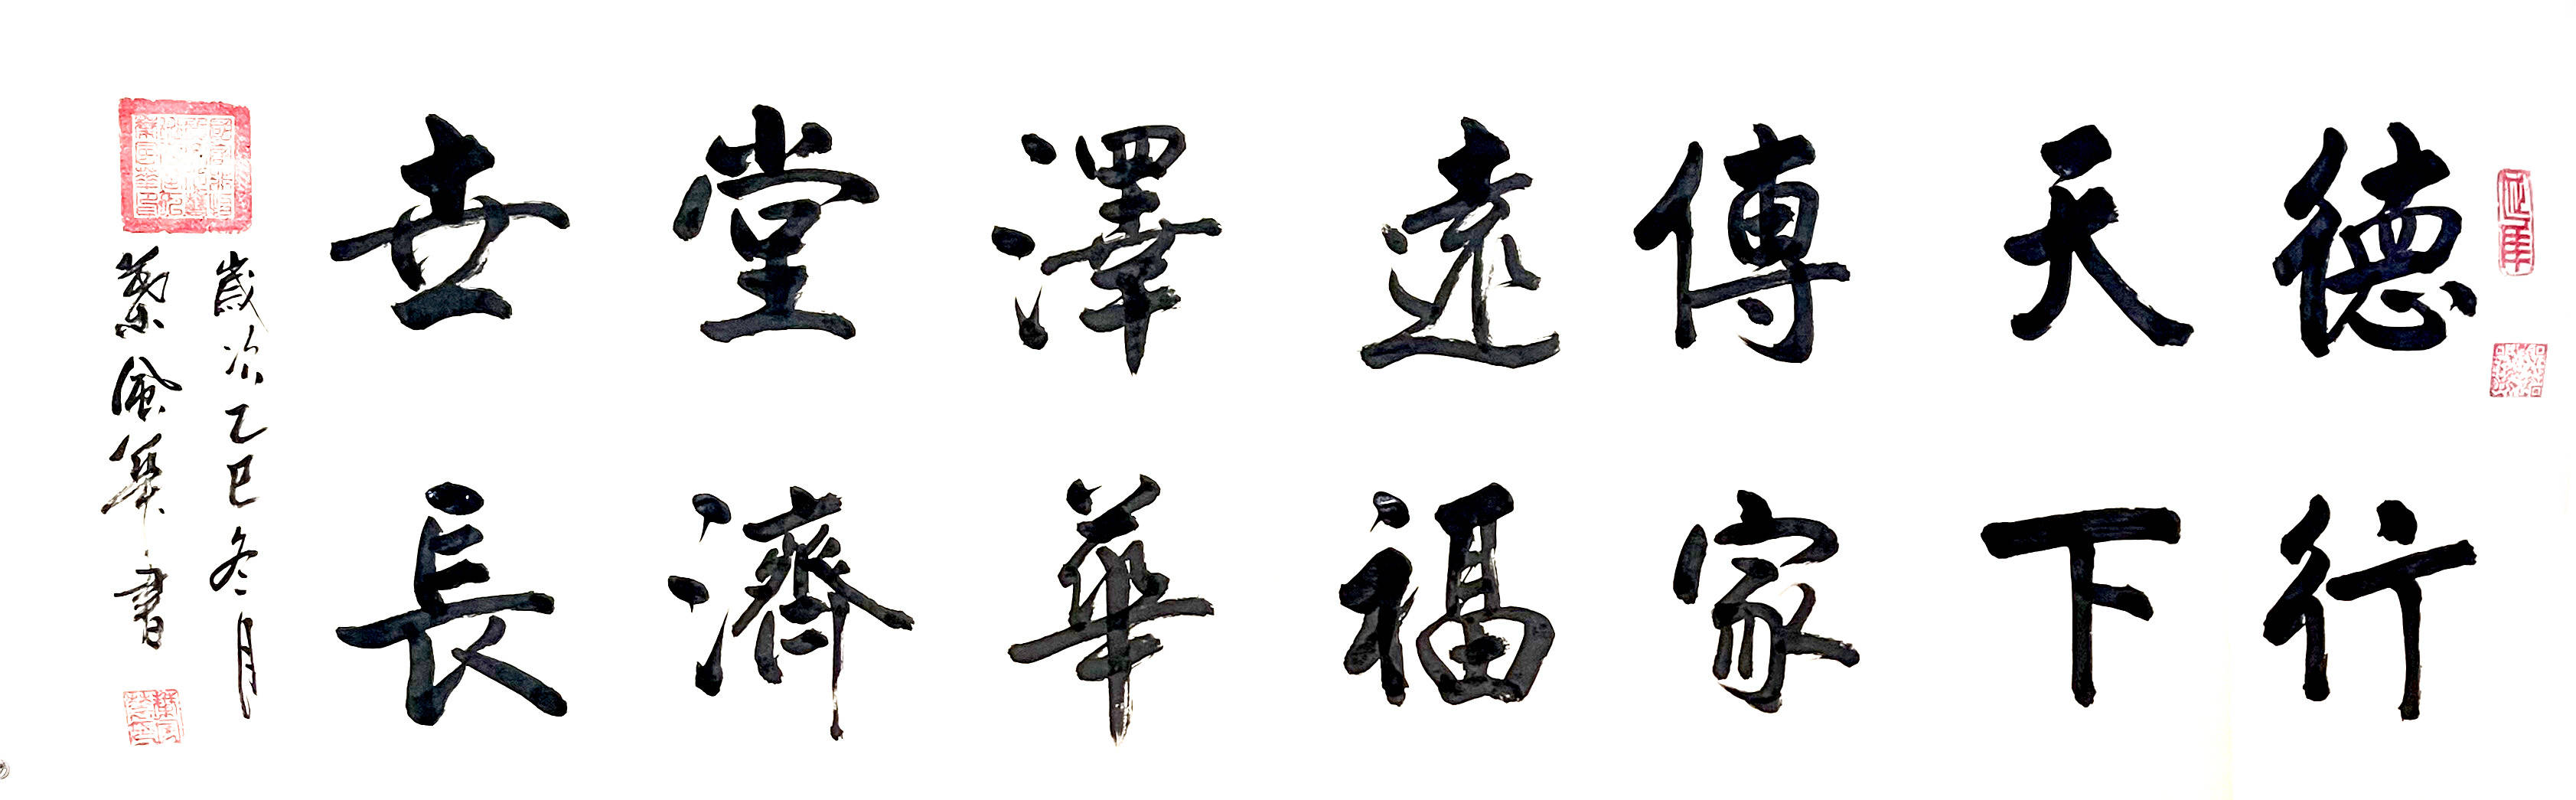 德行
天下
傳家
遠福
澤華
堂濟
世長
歲次乙巳冬月
葉風華書